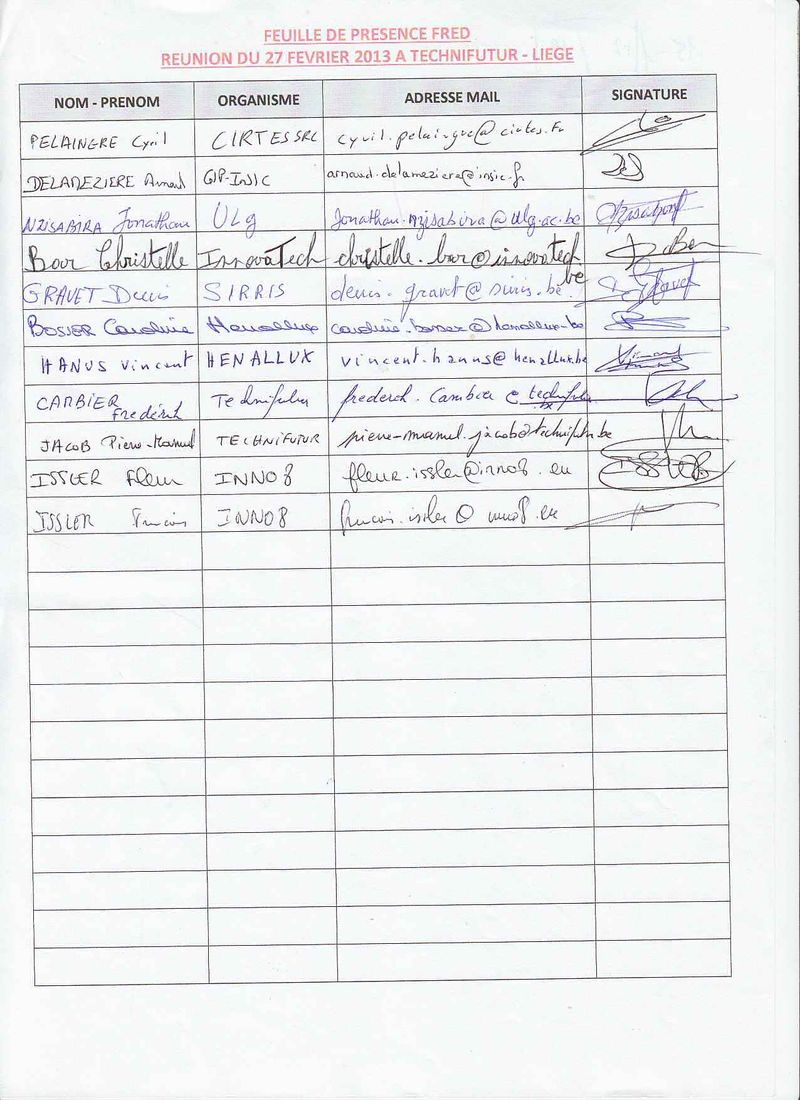 FEUILLE DE PRESENCE FRED
REUNION DU 27 FEVRIER 2013 A TECHNIFUTUR - LIEGE
NOM - PRENOM ORGANISME ADRESSE MAIL SIGNATURE
PELAINGRE Cyril CIRTES SRC cyril.pelaingre@cirtes.fr
DELAMEZIERE Arnaud GIP-INSIC arnaud.delameziere@insic.fr
NZISABIRA Jonathan ULg Jonathan.Nzisabira@ulg.ac.be
Christelle InnovaTech christelle.bour@innovatech
.be
GRAVET Denis SIRRIS denis.gravet@sirris.be
BOSSER Caroline Henallux caroline.bosser@henallux.be
HANUS Vincent HENALLUX vincent.hanus@henallux.be
CAMBIER Technifutur frederick.cambier@technifutur
Frederick
JACOB Pierre-Manuel TECHNIFUTUR pierre-manuel.jacob@technifutur.be
ISSLER Fleur INNO8 fleur.issler@inno8.eu
ISSLER Francois INNO8 francois.issler@inno8.eu